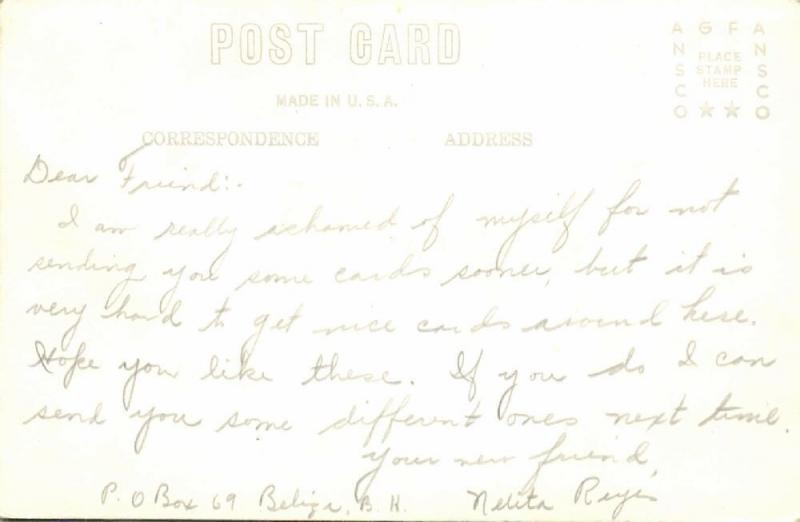 POST CARD
MADE IN U.S.A.
CORRESPONDENCE ADDRESS
AGFA
ANSCO
ANSCO
PLACE
STAMP
HERE
Dear Friend:-
I am really ashamed of myself for not
sending you some cards sooner, but it is
very hard to get nice cards around here.
Hope you like these. If you do I can
send you some different ones next time.
Your new friend,
P.O Box 69 Belize, B.H. Nelita Reyes